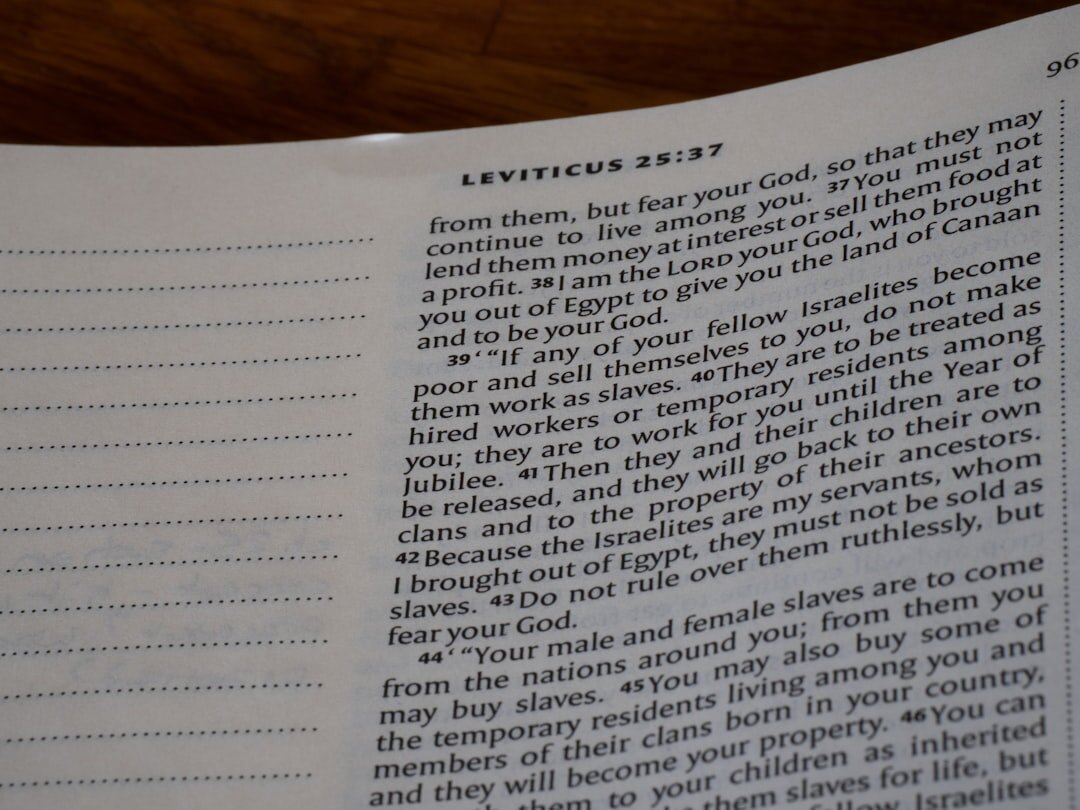 96
LEVITICUS 25:37
from them, but fear your God, so that they may
continue to live among you. 37 You must not
lend them money at interest or sell them food at
a profit. 38 I am the LORD your God, who brought
you out of Egypt to give you the land of Canaan
and to be your God.
39 ‘ “If any of your fellow Israelites become
poor and sell themselves to you, do not make
them work as slaves. 40 They are to be treated as
hired workers or temporary residents among
you; they are to work for you until the Year of
Jubilee. 41 Then they and their children are to
be released, and they will go back to their own
clans and to the property of their ancestors.
42 Because the Israelites are my servants, whom
I brought out of Egypt, they must not be sold as
slaves. 43 Do not rule over them ruthlessly, but
fear your God.
44 ‘ “Your male and female slaves are to come
from the nations around you; from them you
may buy slaves. 45 You may also buy some of
the temporary residents living among you and
members of their clans born in your country,
and they will become your property. 46 You can
them to your children as inherited
them slaves for life, but
fellow Israelites